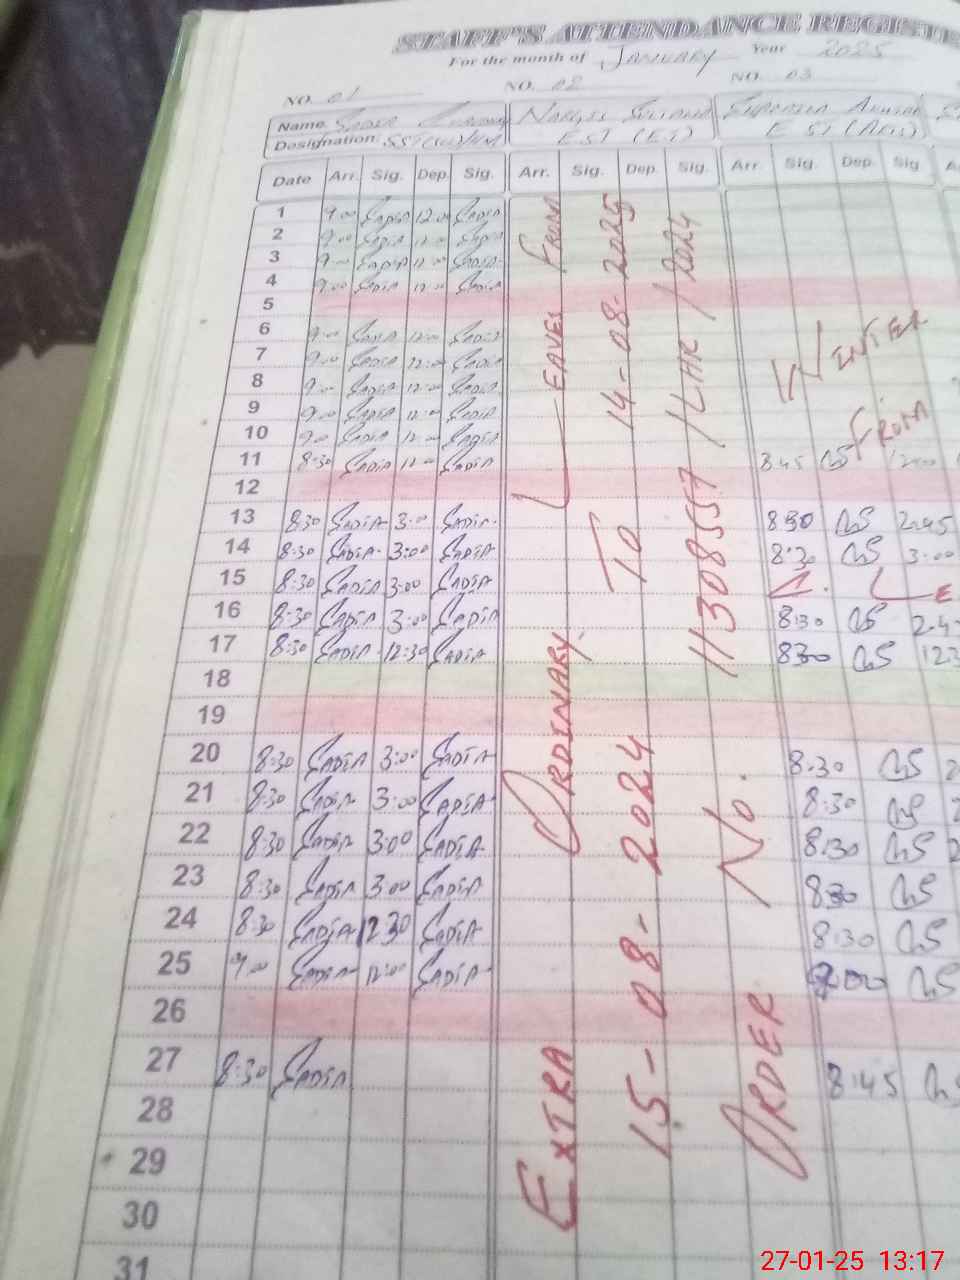 STAFF'S ATTENDANCE REGISTE
For the month of JANUARY Year 2025
NO. 01 NO. 02 NO. 03
Name.
Designation.
Date Arr. Sig. Dep. Sig. Arr. Sig. Dep. Sig. Arr. Sig. Dep. Sig
1 9:00 SADIA 12:00 SADIA
2 9:00 SADIA 12:00 SADIA
3 9:00 SADIA 12:00 SADIA
4 9:00 SADIA 12:00 SADIA
5
6 9:00 SADIA 12:00 SADIA
7 9:00 SADIA 12:00 SADIA
8 9:00 SADIA 12:00 SADIA
9 9:00 SADIA 12:00 SADIA
10 9:00 SADIA 12:00 SADIA
11 8:30 SADIA 12:00 SADIA 8:45
12
13 8:30 SADIA 3:00 SADIA 8:30 2:45
14 8:30 SADIA 3:00 SADIA 8:30 3:00
15 8:30 SADIA 3:00 SADIA
16 8:30 SADIA 3:00 SADIA 8:30
17 8:30 SADIA 12:30 SADIA 8:30
18
19
20 8:30 SADIA 3:00 SADIA 8:30
21 8:30 SADIA 3:00 SADIA 8:30
22 8:30 SADIA 3:00 SADIA 8:30
23 8:30 SADIA 3:00 SADIA 8:30
24 8:30 SADIA 12:30 SADIA 8:30
25 9:00 SADIA 12:00 SADIA 9:00
26
27 8:30 SADIA 8:45
28
29
30
31
EXTRA ORDINARY LEAVE FROM
15-08-2024 TO 14-08-2025
ORDER NO. 11308557/LHR/2024
WINTER
FROM
27-01-25 13:17